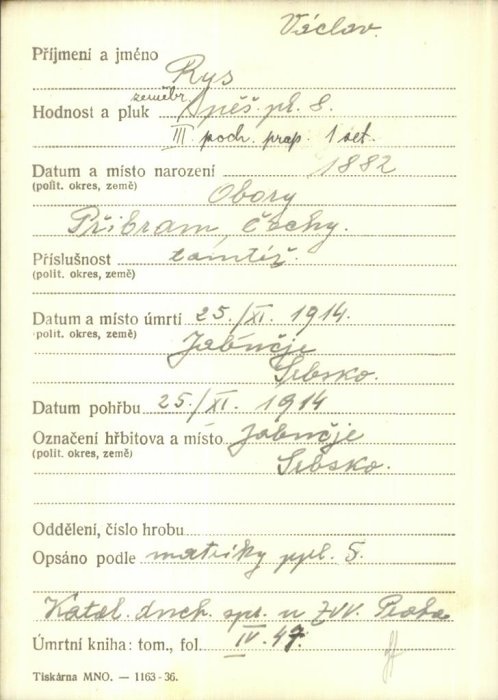 Václav.
Příjmení a jméno
Rys
Hodnost a pluk zeměbr. pěš. pl. 8.
III. poch. prap. 1 set.
Datum a místo narození 1882
(polit. okres, země)
Obory
Příbram, Čechy.
Příslušnost tamtéž.
(polit. okres, země)
Datum a místo úmrtí 25./XI. 1914.
polit. okres, země)
Jabučje
Srbsko.
Datum pohřbu 25./XI. 1914
Označení hřbitova a místo Jabučje
(polit. okres, země)
Srbsko.
Oddělení, číslo hrobu
Opsáno podle matriky ppl. 5.
Katol. duch. spr. u ZVV. Praha
Úmrtní kniha: tom., fol. IV. 47.
Tiskárna MNO. — 1163-36.